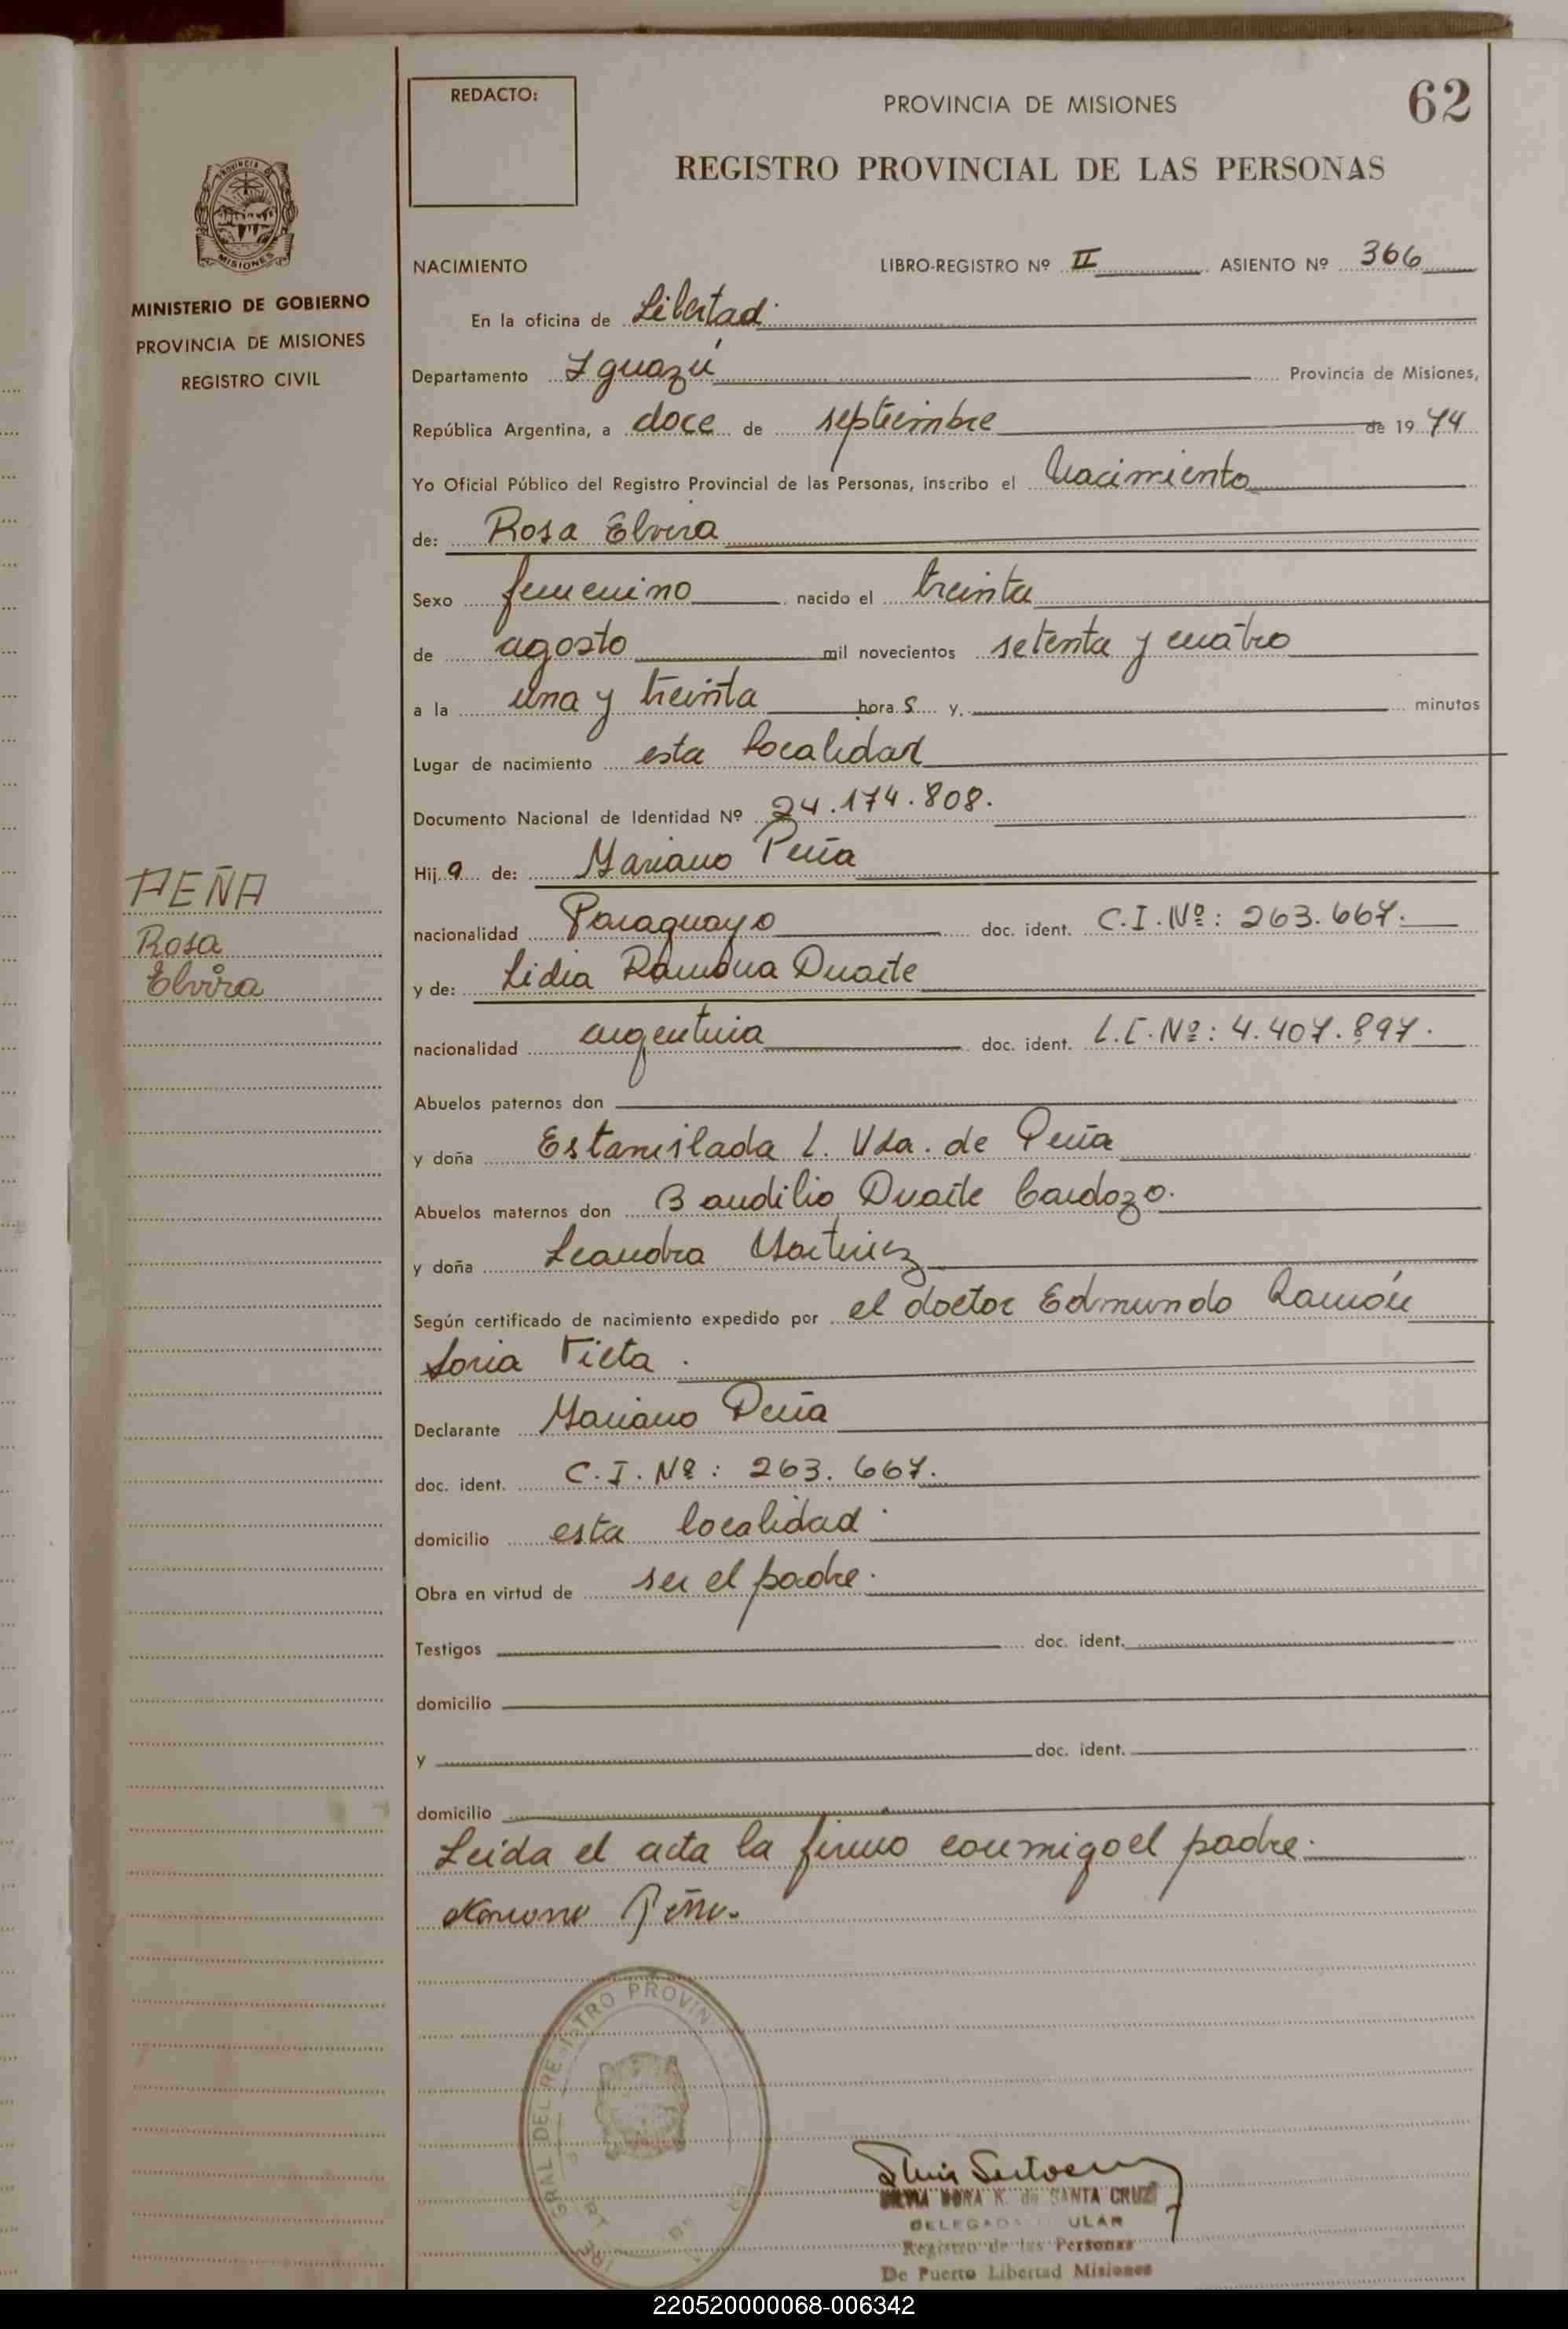 REDACTO:
PROVINCIA DE MISIONES
62
REGISTRO PROVINCIAL DE LAS PERSONAS
PROVINCIA
MISIONES
MINISTERIO DE GOBIERNO
PROVINCIA DE MISIONES
REGISTRO CIVIL
PEÑA
Rosa
Elvira
NACIMIENTO LIBRO-REGISTRO Nº II ASIENTO Nº 366
En la oficina de Libertad.
Departamento Iguazú Provincia de Misiones,
República Argentina, a doce de septiembre de 1974
Yo Oficial Público del Registro Provincial de las Personas, inscribo el Nacimiento
de: Rosa Elvira
Sexo femenino nacido el treinta
de agosto mil novecientos setenta y cuatro
a la una y treinta hora s y, minutos
Lugar de nacimiento esta localidad
Documento Nacional de Identidad Nº 24.174.808.
Hij a de: Mariano Peña
nacionalidad Paraguayo doc. ident. C.I.Nº: 263.667.
y de: Lidia Ramona Duarte
nacionalidad argentina doc. ident. L.C.Nº: 4.407.897.
Abuelos paternos don
y doña Estanislada L. Vda. de Peña
Abuelos maternos don Baudilio Duarte Cardozo.
y doña Leandra Martinez
Según certificado de nacimiento expedido por el doctor Edmundo Ramón
Soria Vieta.
Declarante Mariano Peña
doc. ident. C.I.Nº: 263.667.
domicilio esta localidad.
Obra en virtud de ser el padre.
Testigos doc. ident.
domicilio
y doc. ident.
domicilio
Leída el acta la firmo conmigo el padre.
Mariano Peña.
GRAL DEL REGISTRO PROVIN
K. de SANTA CRUZ
DELEGADA TITULAR
Registro de las Personas
De Puerto Libertad Misiones
220520000068-006342